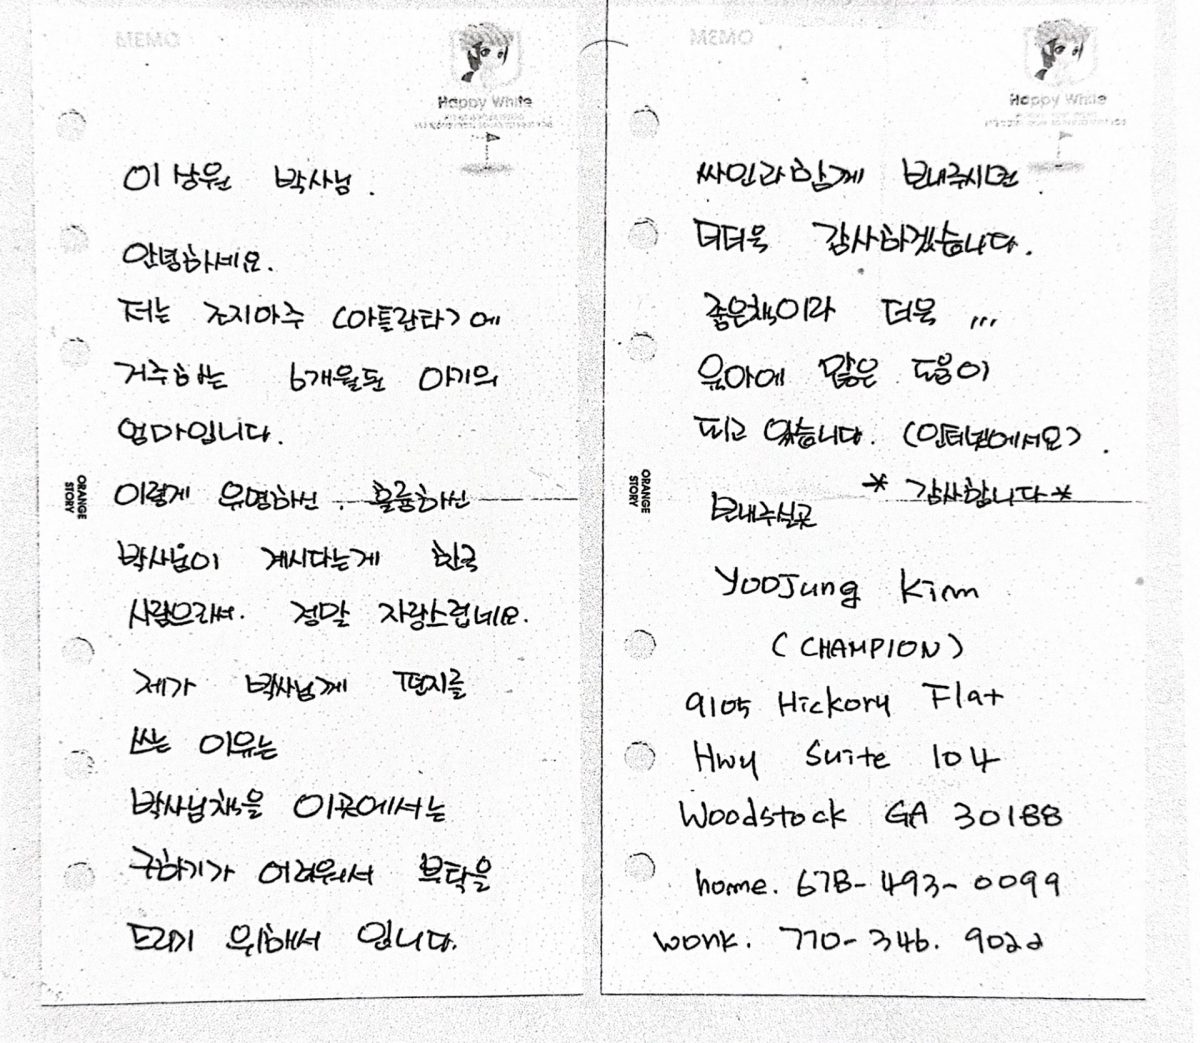 MEMO
Happy White
이상원 박사님.
안녕하세요.
저는 조지아주 (아틀란타)에
거주하는 6개월된 아기의
엄마입니다.
이렇게 유명하신. 훌륭하신
박사님이 계시다는게 한국
사람으로써. 정말 자랑스럽네요.
제가 박사님께 편지를
쓰는 이유는
박사님책을 이곳에서는
구하기가 어려워서 부탁을
드리기 위해서 입니다.
ORANGE
STORY
MEMO
Happy White
싸인과함께 보내주시면
더더욱 감사하겠습니다.
좋은책이라 더욱 ...
육아에 많은 도움이
되고 있습니다. (인터넷에서요).
* 감사합니다 *
보내주실곳
YOOJung Kim
(CHAMPION)
9105 Hickory Flat
Hwy Suite 104
Woodstock GA 30188
home. 678-493-0099
work. 770-346. 9022
ORANGE
STORY